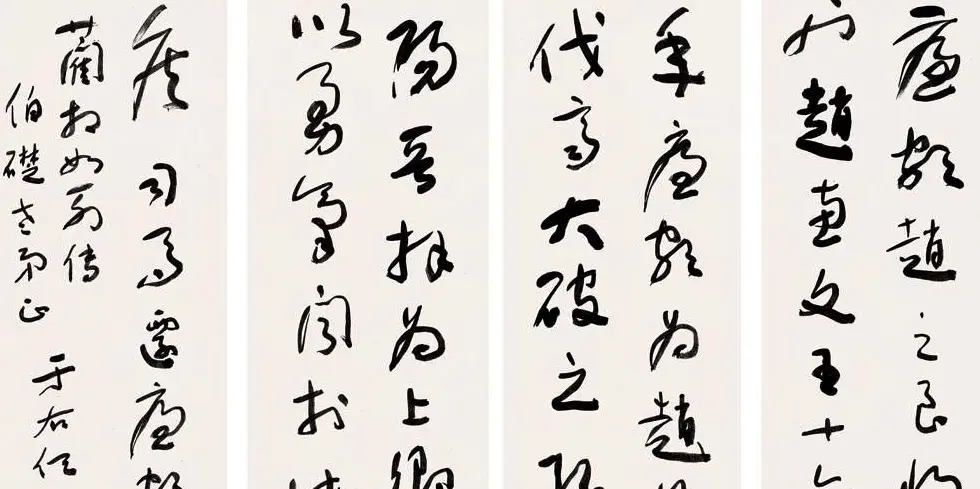 廉頗趙之良將
也趙惠文王十六
年廉頗為趙將
伐齊大破之取
陽晉拜為上卿
以勇氣聞於諸
侯 司馬遷廉頗
藺相如列傳
伯礎老弟正
于右任